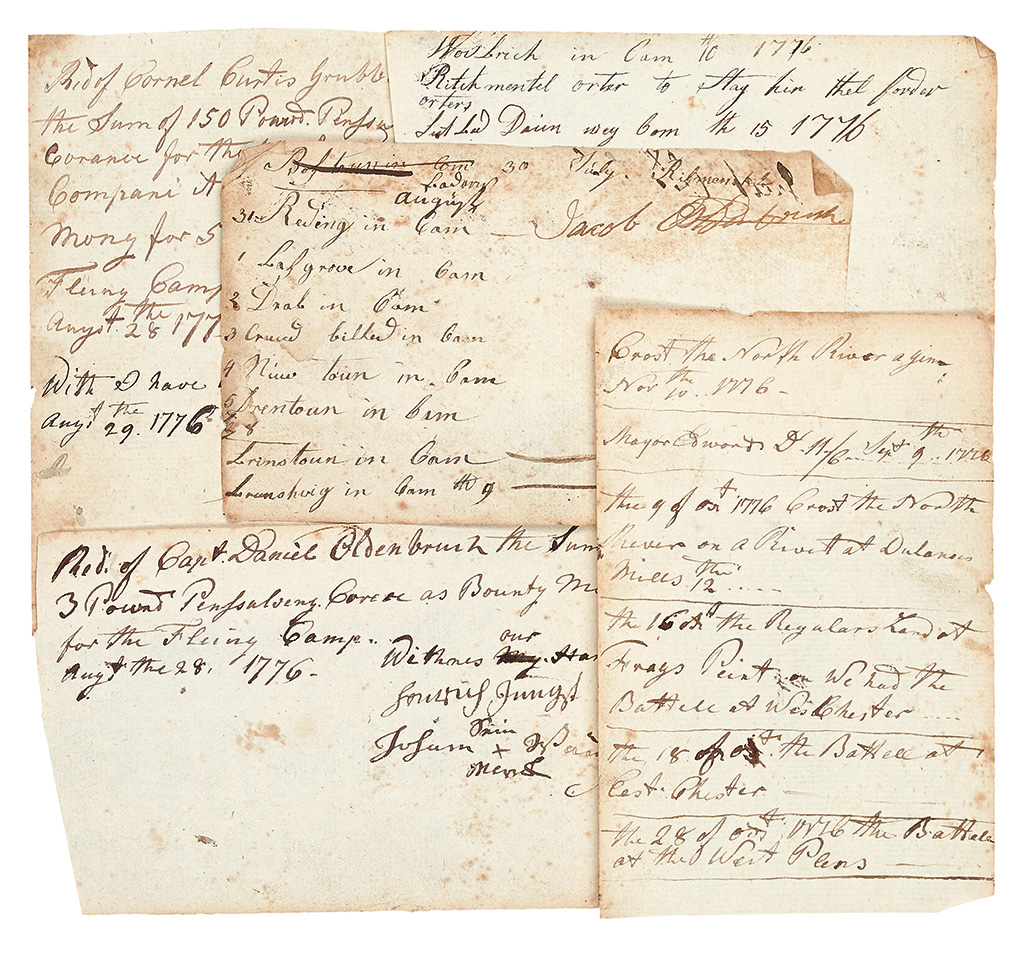 Recd of Cornel Curtis Grubb
the Sum of 150 Pound Pensu
Corance for the
Compani A
Mony for 5
Fleing Camp
Augst the 28 177
With I have
Augt the 29. 1776
in Cam th 10 1776
orter to Stay hin thel forder
orters
Dawn wey Com th 15 1776
Cam 30 July.
August
31 Reding in Cam — Jacob
1 Lasgrove in Cam
2 Drab in Cam
3 Crued billed in Cam
4 Niw toun in Cam
5 Trentoun in Cam
7 8
Prinstoun in Cam
Brunshwig in Cam th 9
Recd. of Capt. Daniel Oldenbrush the Sum
3 Pound Penssulveng. Corece as Bounty M
for the Fleing Camp.
Augt the 28. 1776
our
Withnes My Han
Jungst
Sein
+
Merck
Crost the North River agin
Nov the 10.. 1776
Mayor Edwords D. Sept 9th 1776
the 9 of oct 1776 Crost the North
River on a Rivett at Dulances
Mills the 12
the 16 oct the Regulars Land at
Frags Peint on We had the
Battell at West Chester
the 18 of oct. the Battell at
East. Chester
the 28 of oct 1776 the Battele
at the West Plens